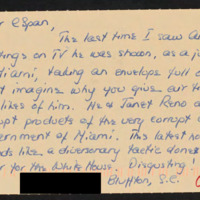 r CSpan,
The last time I saw
tings on TV he was shown, as a ju
Miami, taking an envelope full o
t imagine why you give air t
likes of him. He & Janet Reno a
upt products of the very corrupt
ernment of Miami. This latest
ds like a diversionary tactic
r for the White House. Disgusting!
Bluffton, S.C.